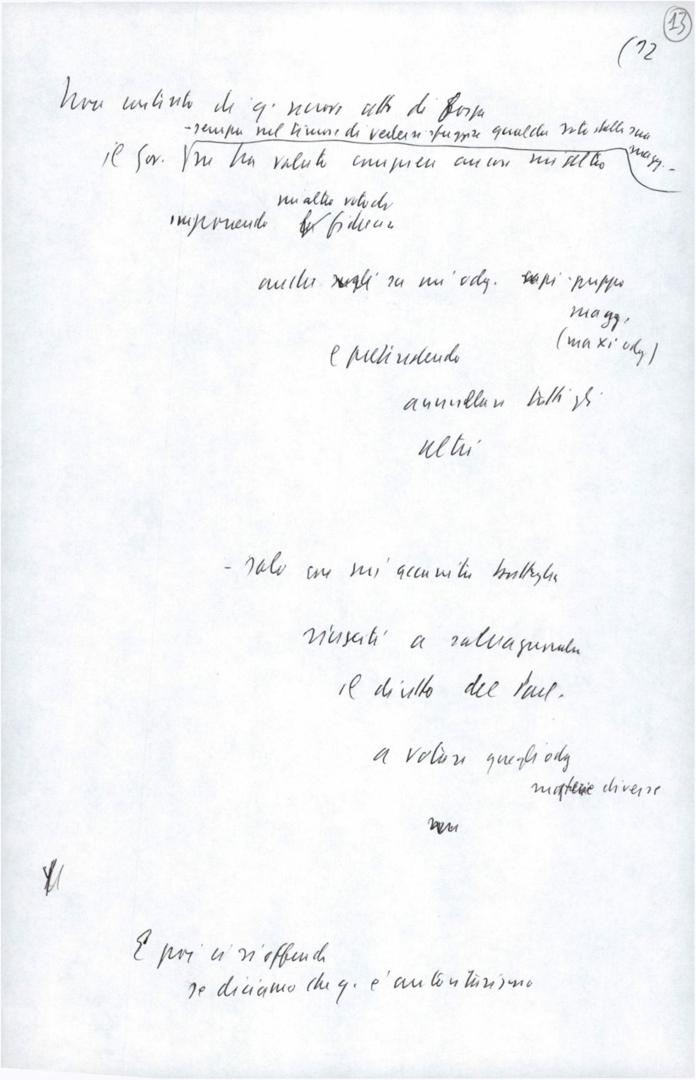 13
(12
Non contento di q. nuovo atto di forza
- sempre nel timore di vedersi sfuggire qualche voto della sua
magg. -
il Gov. ne ha voluto compiere ancora un altro
un altro voto di
imponendo fiducia
anche su un' odg. capi-gruppo
magg.
(maxi odg)
e pretendendo
annullare tutti gli
altri
- solo con un' accanita battaglia
riusciti a salvaguardare
il diritto del Parl.
a votare quegli odg
materie diverse
E poi ci si offende
se diciamo che q. è autoritarismo